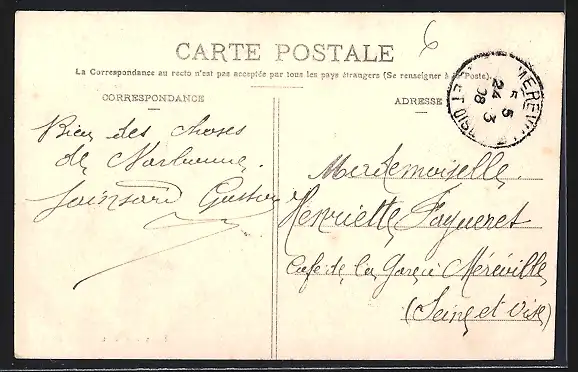 6
CARTE POSTALE
La Correspondance au recto n'est pas acceptée par tous les pays étrangers (Se renseigner à la Poste).
CORRESPONDANCE
ADRESSE
MEREVILLE
5
24 3
08
ET OISE
Bien des choses
de Narbonne.
Gaston
Mademoiselle
Henriette Fagueret
Café de la Gare à Méréville
(Seine et Oise)